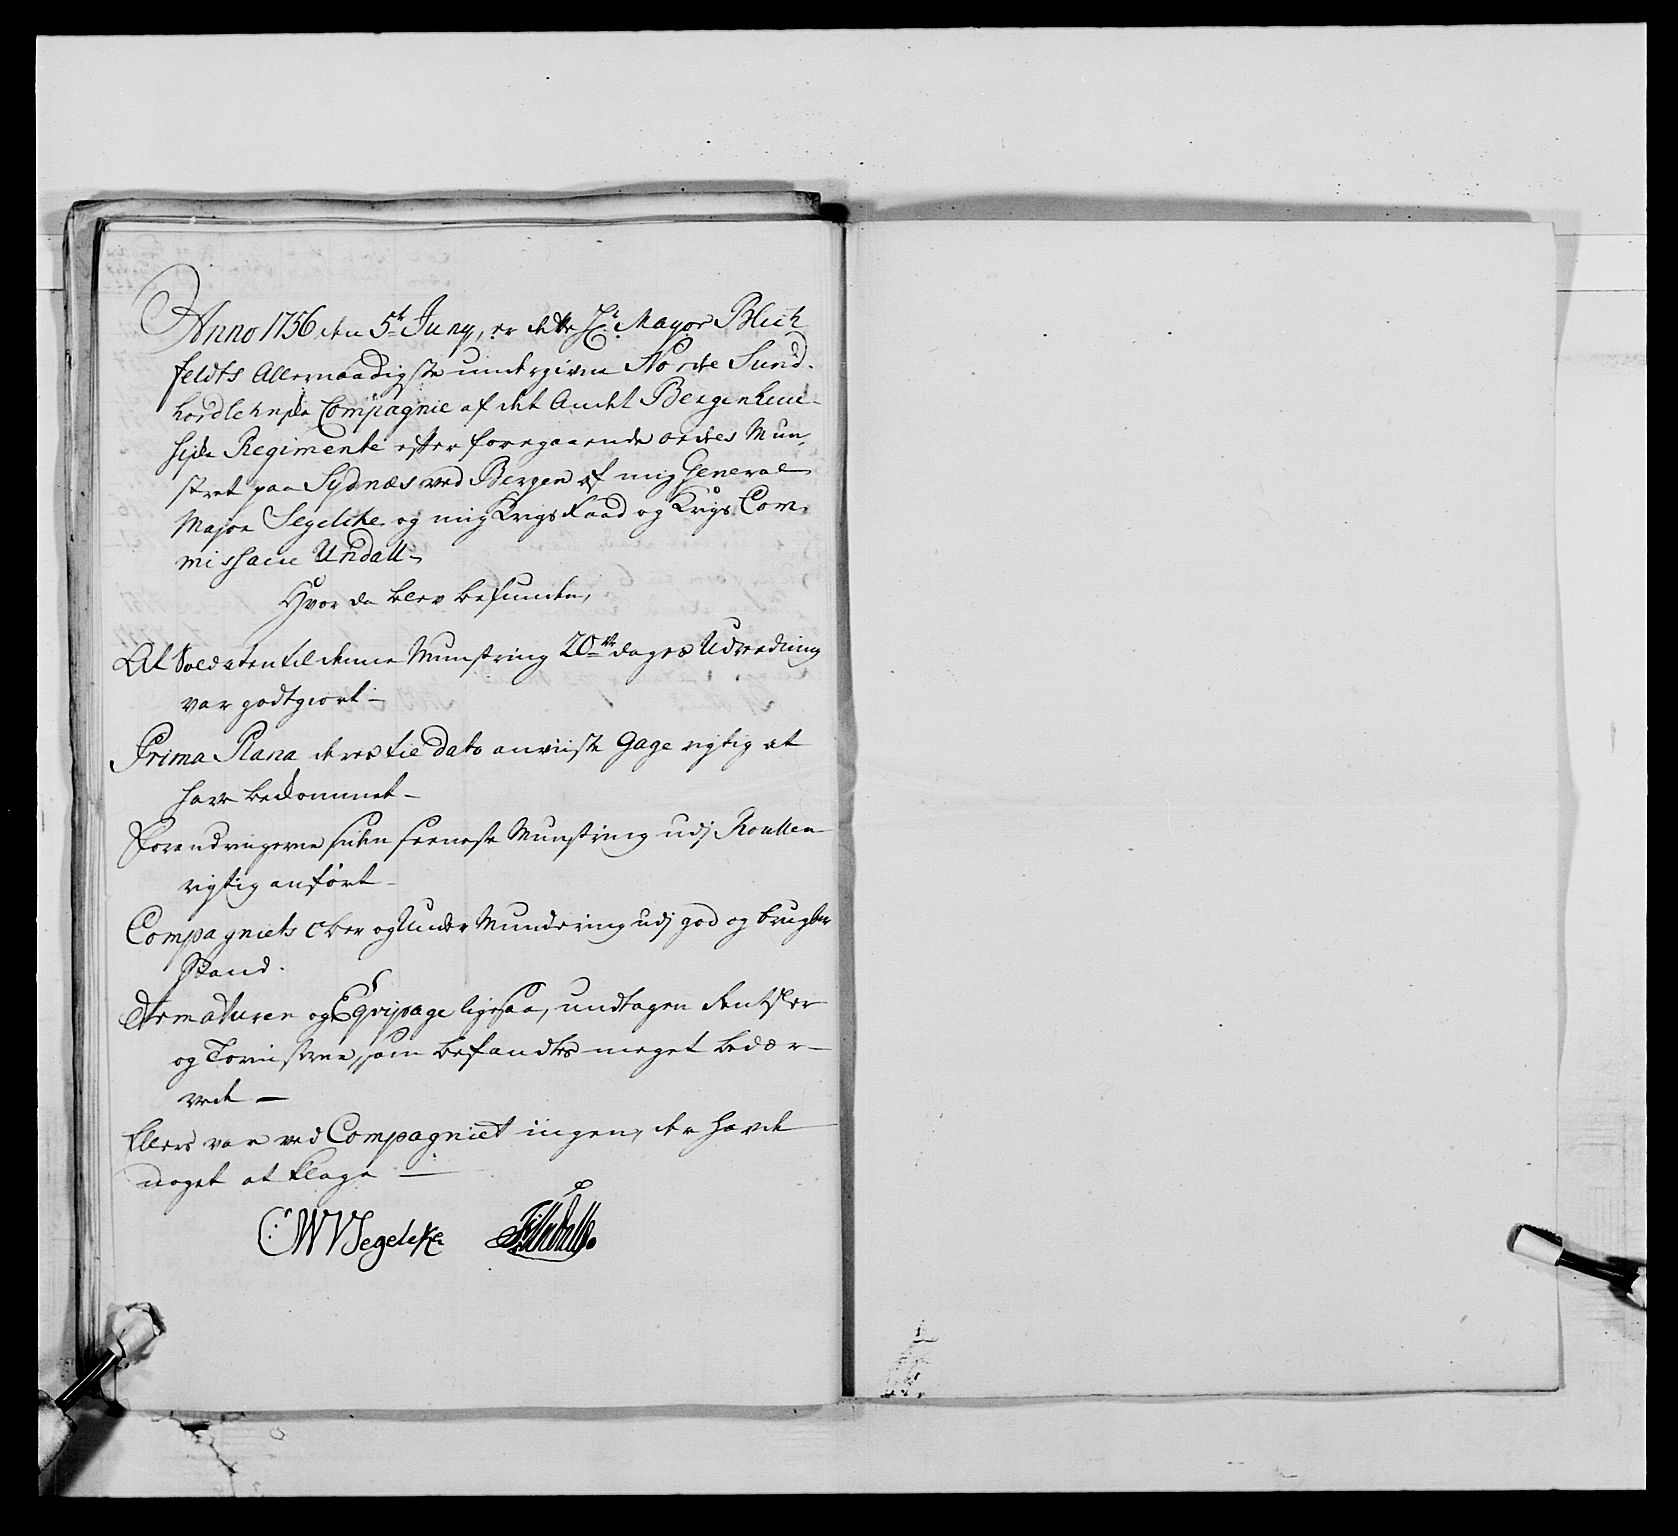 Anno 1756 den 5t Juny, er dette Hr. Mayor Blich
feldts Allernaadigste undergivne Nordre Sund-
hordlehnske Compagnie af det Andet Bergenhuu-
siske Regimente efter foregaaende ordres Mun-
stret paa Sydnæs ved Bergen af mig General
Major Segelcke og mig Krigs Raad og Krigs Com-
missaire Undall-
Hvor da blev befunden,
At Soldaten til denne Munstring 20ve dages Udreedning
var godtgiort -
Prima Plana deres til dato anviiste Gage rigtig at
have bekommet -
Forandringerne siden seeneste Munstring udj Roullen
rigtig anført -
Compagniets Ober og Under Mundering udj god og brugbar
stand.
Armaturen og Eqvipage ligesaa, undtagen
og Tornistrene, som befandtes meget bedær-
vede -
Ellers var ved Compagniet ingen, der havde
noget at klage -
C: W V Segelcke Undall.